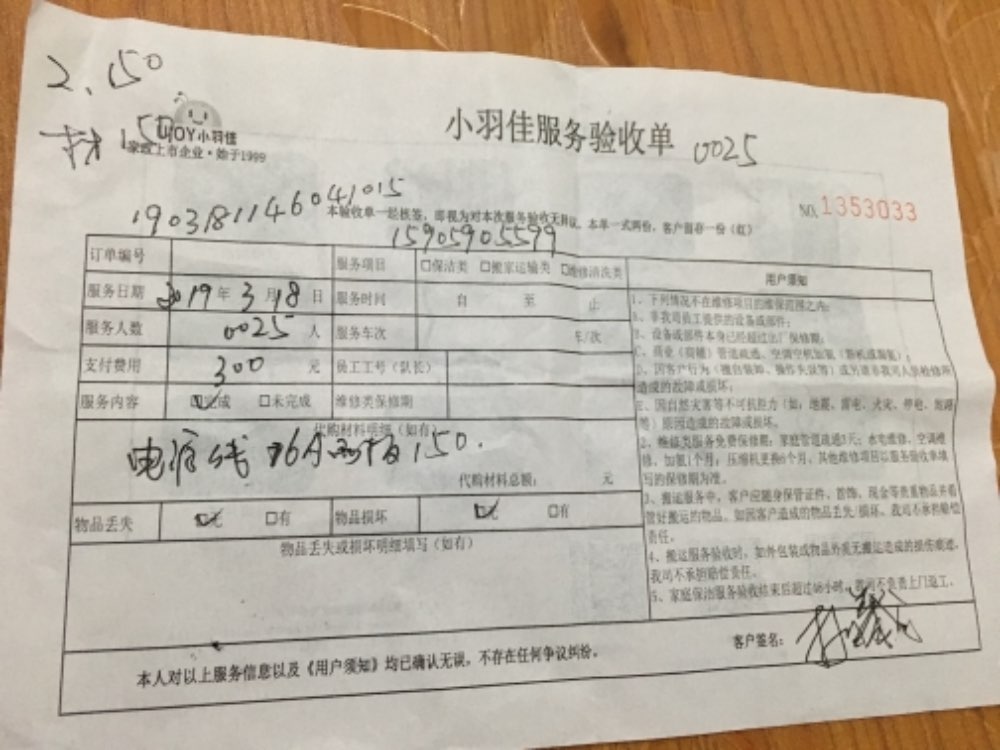 2.150
材150
JOY小羽佳
家政上市企业·始于1999
小羽佳服务验收单 0025
1903181146041015
NO. 1353033
本验收单一经核签,即视为对本次服务验收无异议。本单一式两份,客户留存一份(红)
15905905599
订单编号
服务项目 □保洁类 □搬家运输类 □维修清洗类
服务日期 2019年3月18日
服务时间 自 至 止
服务人数 0025 人
服务车次 车/次
支付费用 300 元
员工工号(队长)
服务内容 ☑完成 □未完成
维修类保修期
代购材料明细(如有)
电源线 16A 150.
代购材料总额: 元
物品丢失 ☑无 □有
物品损坏 ☑无 □有
物品丢失或损坏明细填写(如有)
用户须知
1、下列情况不在维修项目的维保范围之内:
A、非我司员工提供的设备或部件;
B、设备或部件本身已经超过出厂保修期;
C、商业(商铺)管道疏通、空调空机加氟(新机或漏氟);
D、因客户行为(擅自装卸、操作失误等)或另请非我司人员检修所
造成的故障或损坏;
E、因自然灾害等不可抗拒力(如:地震、雷电、火灾、停电、短路
等)原因造成的故障或损坏。
2、维修类服务免费保修期:家庭管道疏通3天;水电维修、空调维
修、加氟1个月;压缩机更换6个月,其他维修项目以服务验收单填
写的保修期为准。
3、搬运服务中,客户应随身保管证件、首饰、现金等贵重物品并看
管好搬运的物品。如因客户造成的物品丢失/损坏,我司不承担赔偿
责任。
4、搬运服务验收时,如外包装或物品外观无搬运造成的损伤痕迹,
我司不承担赔偿责任。
5、家庭保洁服务验收结束后超过48小时,我司不负责上门返工。
客户签名:
本人对以上服务信息以及《用户须知》均已确认无误,不存在任何争议纠纷。